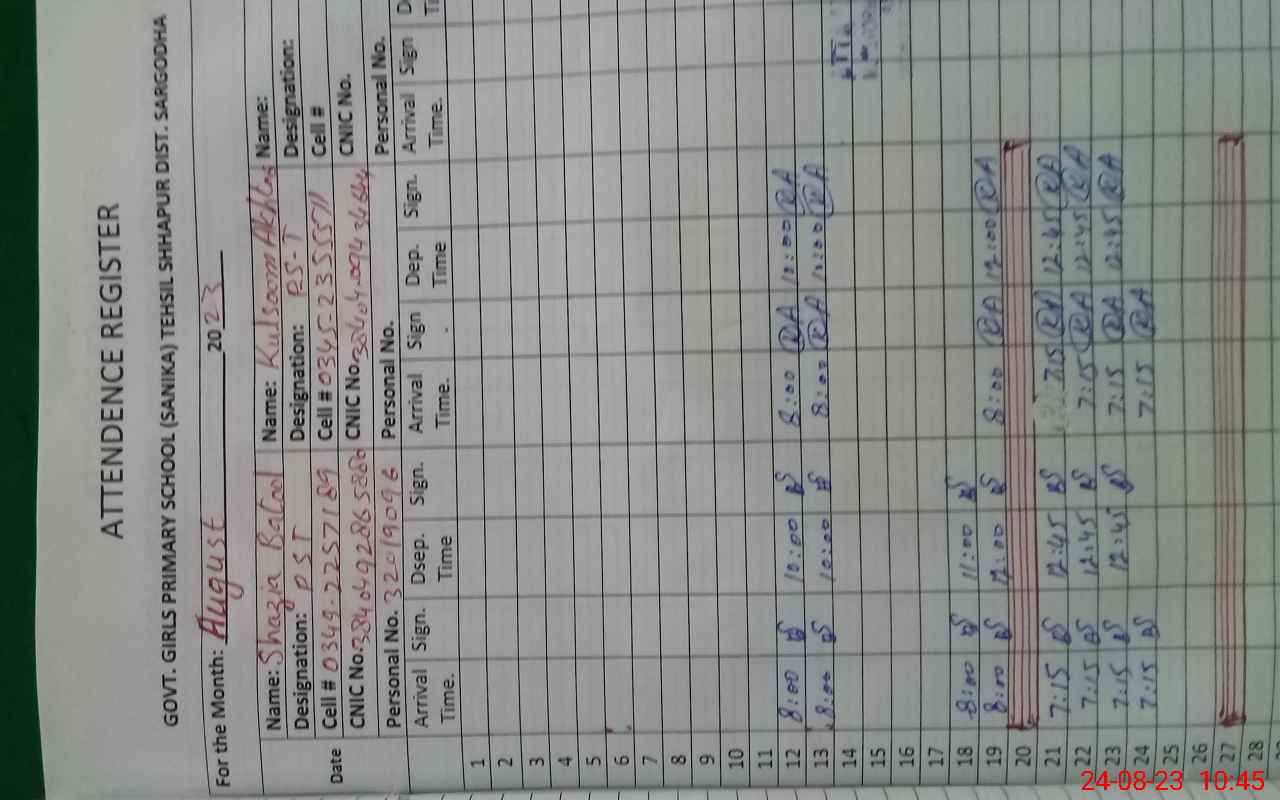 ATTENDENCE REGISTER
GOVT. GIRLS PRIMARY SCHOOL (SANIKA) TEHSIL SHHAPUR DIST. SARGODHA
For the Month: August 2023
Date Name: Shazia Batool Name: Kulsoom Akhtar Name:
Designation: PST Designation: PS-T Designation:
Cell # 0349-22257189 Cell # 0345-2355571 Cell #
CNIC No. CNIC No. CNIC No.
Personal No. 32019096 Personal No. Personal No.
Arrival Time. Sign. Dsep. Time Sign. Arrival Time. Sign Dep. Time Sign. Arrival Time. Sign
1
2
3
4
5
6
7
8
9
10
11
12 8:00 BS 10:00 BS 8:00 RA 10:00 RA
13 8:00 BS 10:00 BS 8:00 RA 10:00 RA
14
15
16
17
18 8:00 BS 11:00 BS
19 8:00 BS 12:00 BS 8:00 RA 12:00 RA
20
21 7:15 BS 12:45 BS 7:15 RA 12:45 RA
22 7:15 BS 12:45 BS 7:15 RA 12:45 RA
23 7:15 BS 12:45 BS 7:15 RA 12:45 RA
24 7:15 BS 7:15 RA
25
26
27
28
24-08-23 10:45